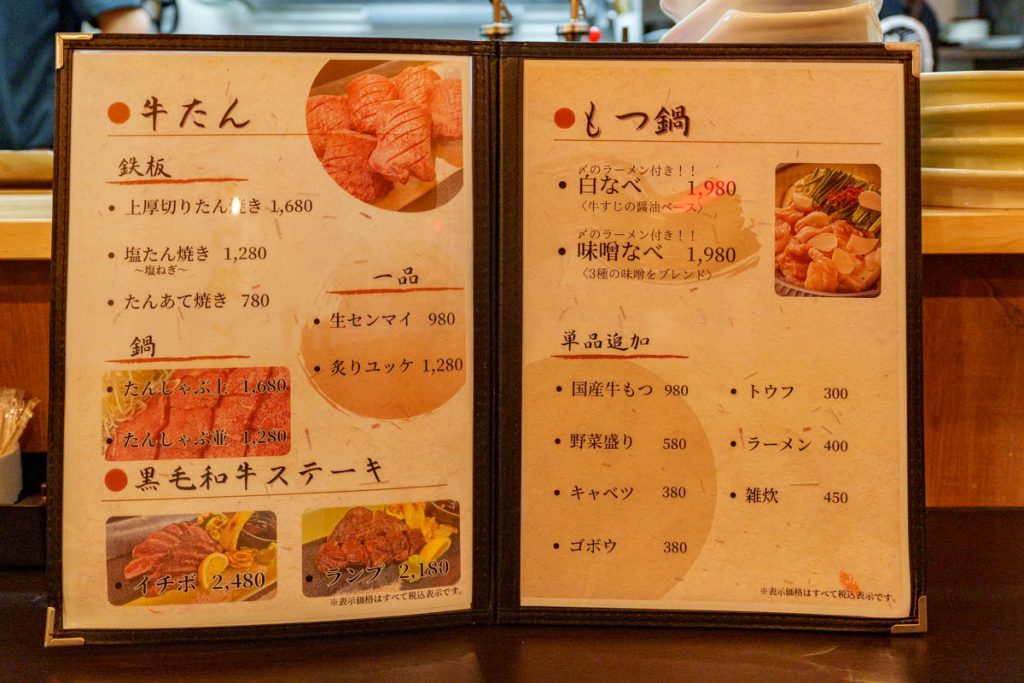 牛たん
鉄板
上厚切りたん焼き 1,680
塩たん焼き 1,280
〜塩ねぎ〜
たんあて焼き 780
一品
生センマイ 980
炙りユッケ 1,280
鍋
たんしゃぶ上 1,680
たんしゃぶ並 1,280
黒毛和牛ステーキ
イチボ 2,480
ランプ 2,180
※表示価格はすべて税込表示です。
もつ鍋
〆のラーメン付き！！
白なべ 1,980
〈牛すじの醤油ベース〉
〆のラーメン付き！！
味噌なべ 1,980
〈3種の味噌をブレンド〉
単品追加
国産牛もつ 980
野菜盛り 580
キャベツ 380
ゴボウ 380
トウフ 300
ラーメン 400
雑炊 450
※表示価格はすべて税込表示です。